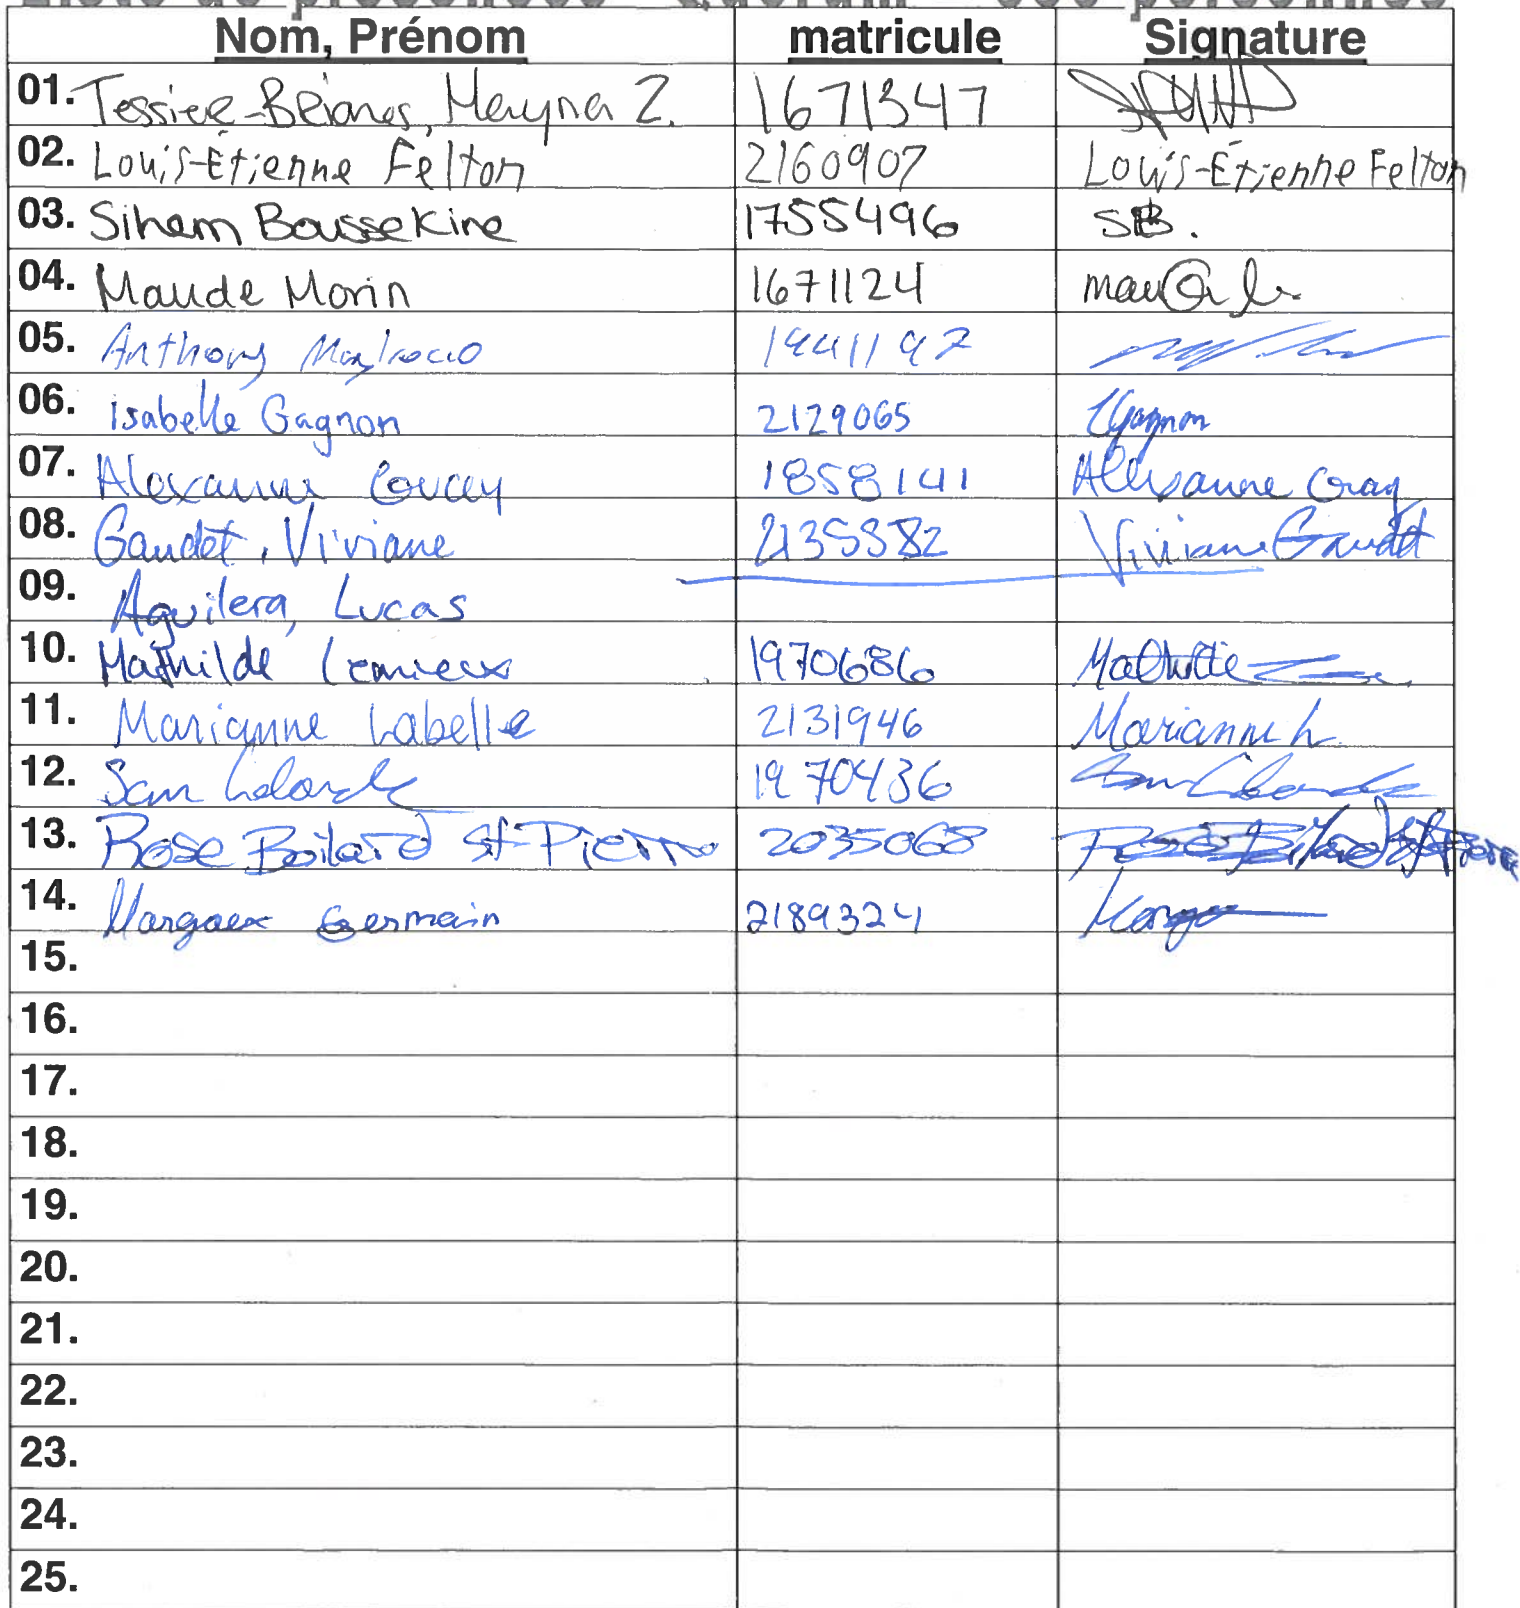 Nom, Prénom matricule Signature
01. Tessier- Z. 1671347
02. Louis-Étienne Felton 2160907 Louis-Étienne Felton
03. Sihem Boussekine 1755496 SB.
04. Maude Morin 1671124
05. Anthony 1941197
06. isabelle Gagnon 2129065 IGagnon
07. Alexanne 1858141 Alexanne
08. Gaudet, Viviane 2135882 Viviane Gaudet
09. Aguilera, Lucas
10. Mathilde Lemieux 1970686 Mathilde
11. Marianne Labelle 2131946 Marianne L
12. Sam Lalonde 1970436
13. Rose Boilard St-Pierre 2035068 Rose Boilard St-Pierre
14. Margaux Germain 2189324
15.
16.
17.
18.
19.
20.
21.
22.
23.
24.
25.